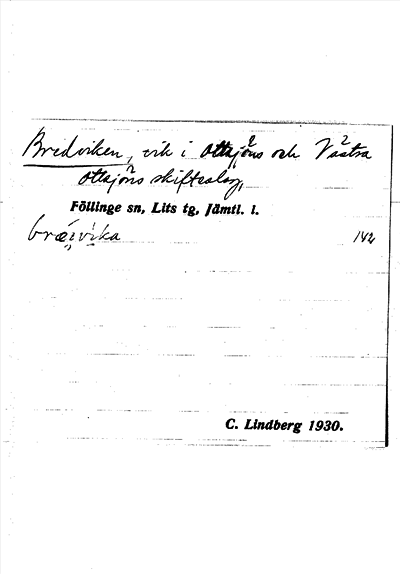 Bredviken, vik i Ottsjöns och Västra
Ottsjöns skifteslag,
Föllinge sn, Lits tg, Jämtl. l.
bræ̀ivìka 142
C. Lindberg 1930.